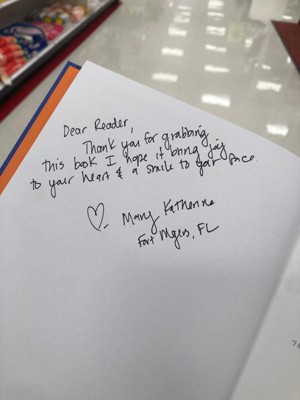 Dear Reader,
Thank you for grabbing
this book I hope it bring joy
to your heart & a smile to your face
Mary Katherine
Fort Myers, FL